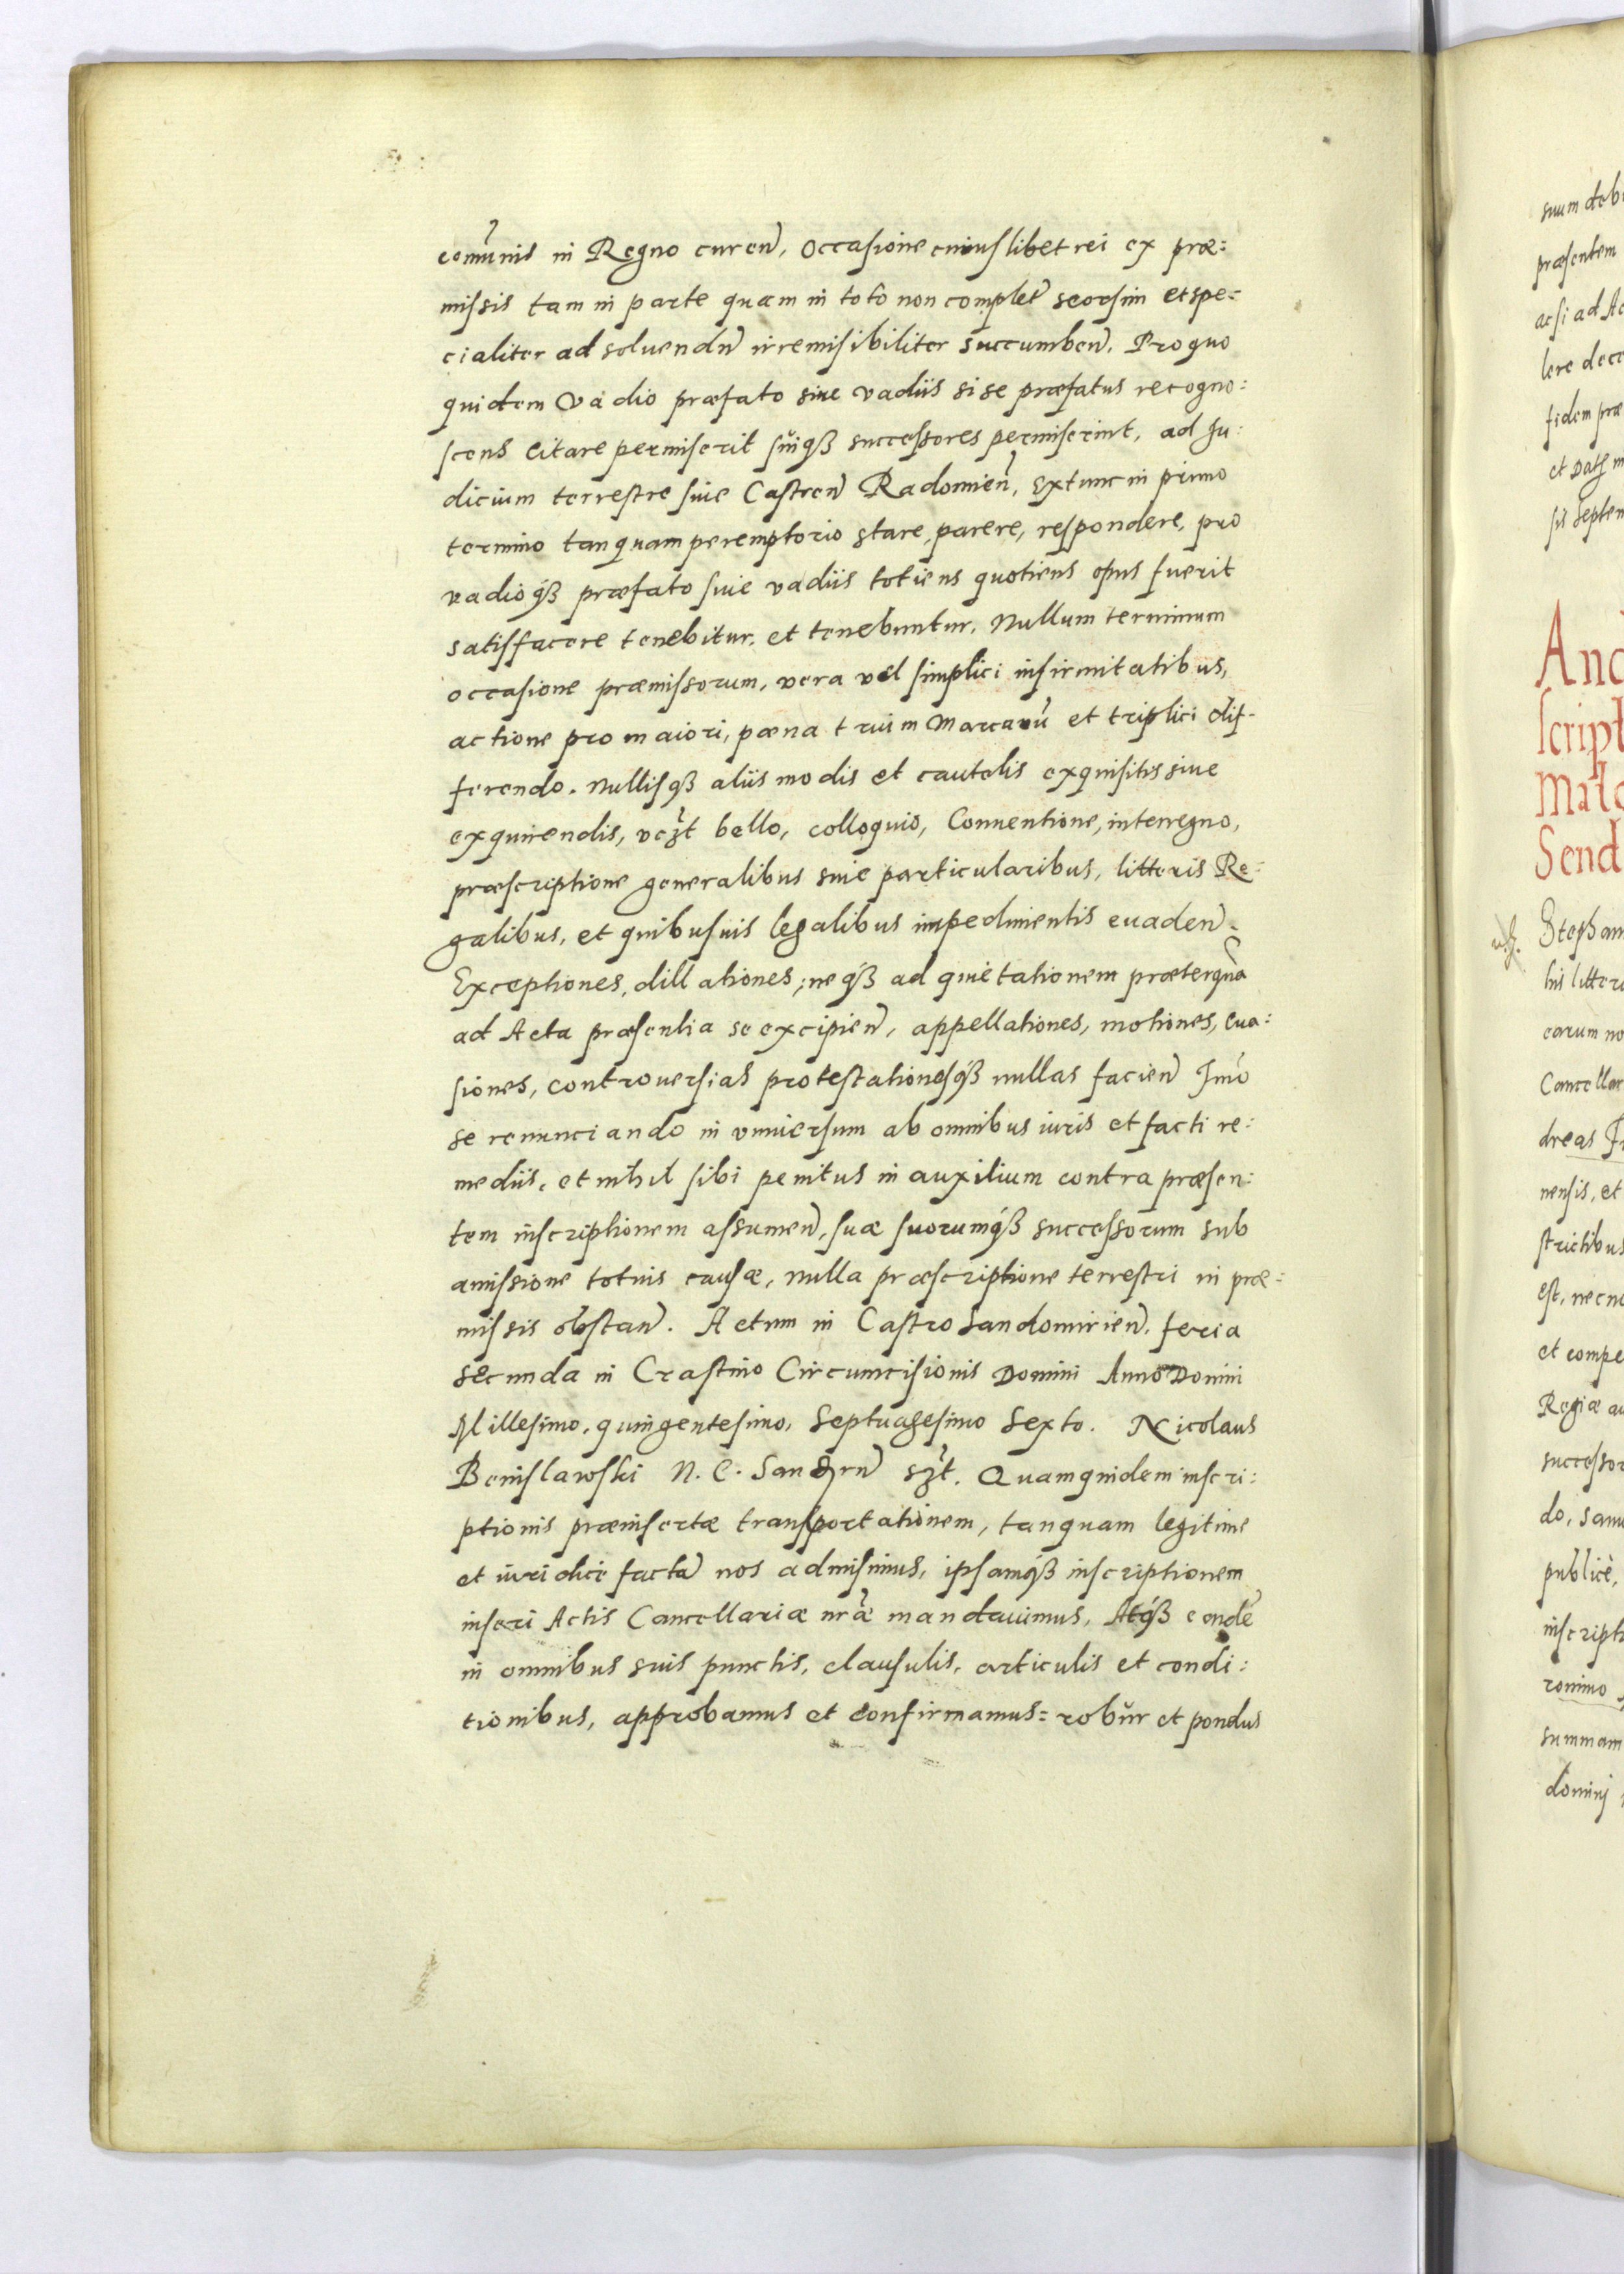 com̃unis in Regno curen̄, occasione cuiuslibet rei ex præ:
missis tam in parte quam in toto non complet̄ seorsim et spe:
cialiter ad soluendn̄ irremisibiliter succumben̄. Pro quo
quidem Vadio præfato siue vadiis si se præfatus recogno:
scens citare permiserit suiqꝫ successores permiserint, ad Ju:
dicium terrestre siue Castren̄ Radomien̄, Extunc in primo
termino tanquam peremptorio stare, parere, respondere, pro
vadioqꝫ præfato siue vadiis totiens quotiens opus fuerit
satisfacere tenebitur, et tenebuntur, Nullum terminum
occasione præmissorum, vera vel simplici infirmitatibus,
actione pro maiori, pæna trium Marcarū et triplici dif-
ferendo. Nullisqꝫ aliis modis et cautelis exquisitis siue
exquirendis, vczt bello, colloquio, Conuentione, interregno,
præscriptione generalibus siue particularibus, litteris Re:
galibus, et quibusuis legalibus impedimentis euaden̄.
Exceptiones, dillationes, neqꝫ ad quietationem præterquā
ad Acta præsentia se excipien̄, appellationes, motiones, eua:
siones, controuersias protestationesqꝫ nullas facien̄ Imò
se renunciando in vniuersum ab omnibus iuris et facti re:
mediis, et nihil sibi penitus in auxilium contra præsen:
tem inscriptionem assumen̄, suæ suorumqꝫ successorum sub
amissione totius causæ, nulla præscriptione terrestri in præ:
missis obstan̄. Actum in Castro Sandomirien̄. feria
secunda in Crastino Circumcisionis Domini Anno Domini
Millesimo, quingentesimo, Septuagesimo Sexto. Nicolaus
Benislawski N. C. Sandrn̄ szt. Quamquidem inscri:
ptionis præinsertæ transportationem, tanquam legitime
et iuridice factā nos admisimus, ipsamqꝫ inscriptionem
inseri Actis Cancellariæ nr̄æ mandauimus, Atqꝫ eandē
in omnibus suis punctis, clausulis, articulis et condi:
tionibus, approbamus et confirmamus: robur et pondus
suum deb
præsentem
ac si ad Ac
lere dece
fidem præ
et Dat̄ m
sis Septem
And
script
Mat
Send
Stephan
his litter
earum no
Cancellar
dreas
nensis, et
strictibus
est, necno
et compe
Regiæ au
successor
do, sanu
publicè,
inscripti
ronimo
summam
dominj